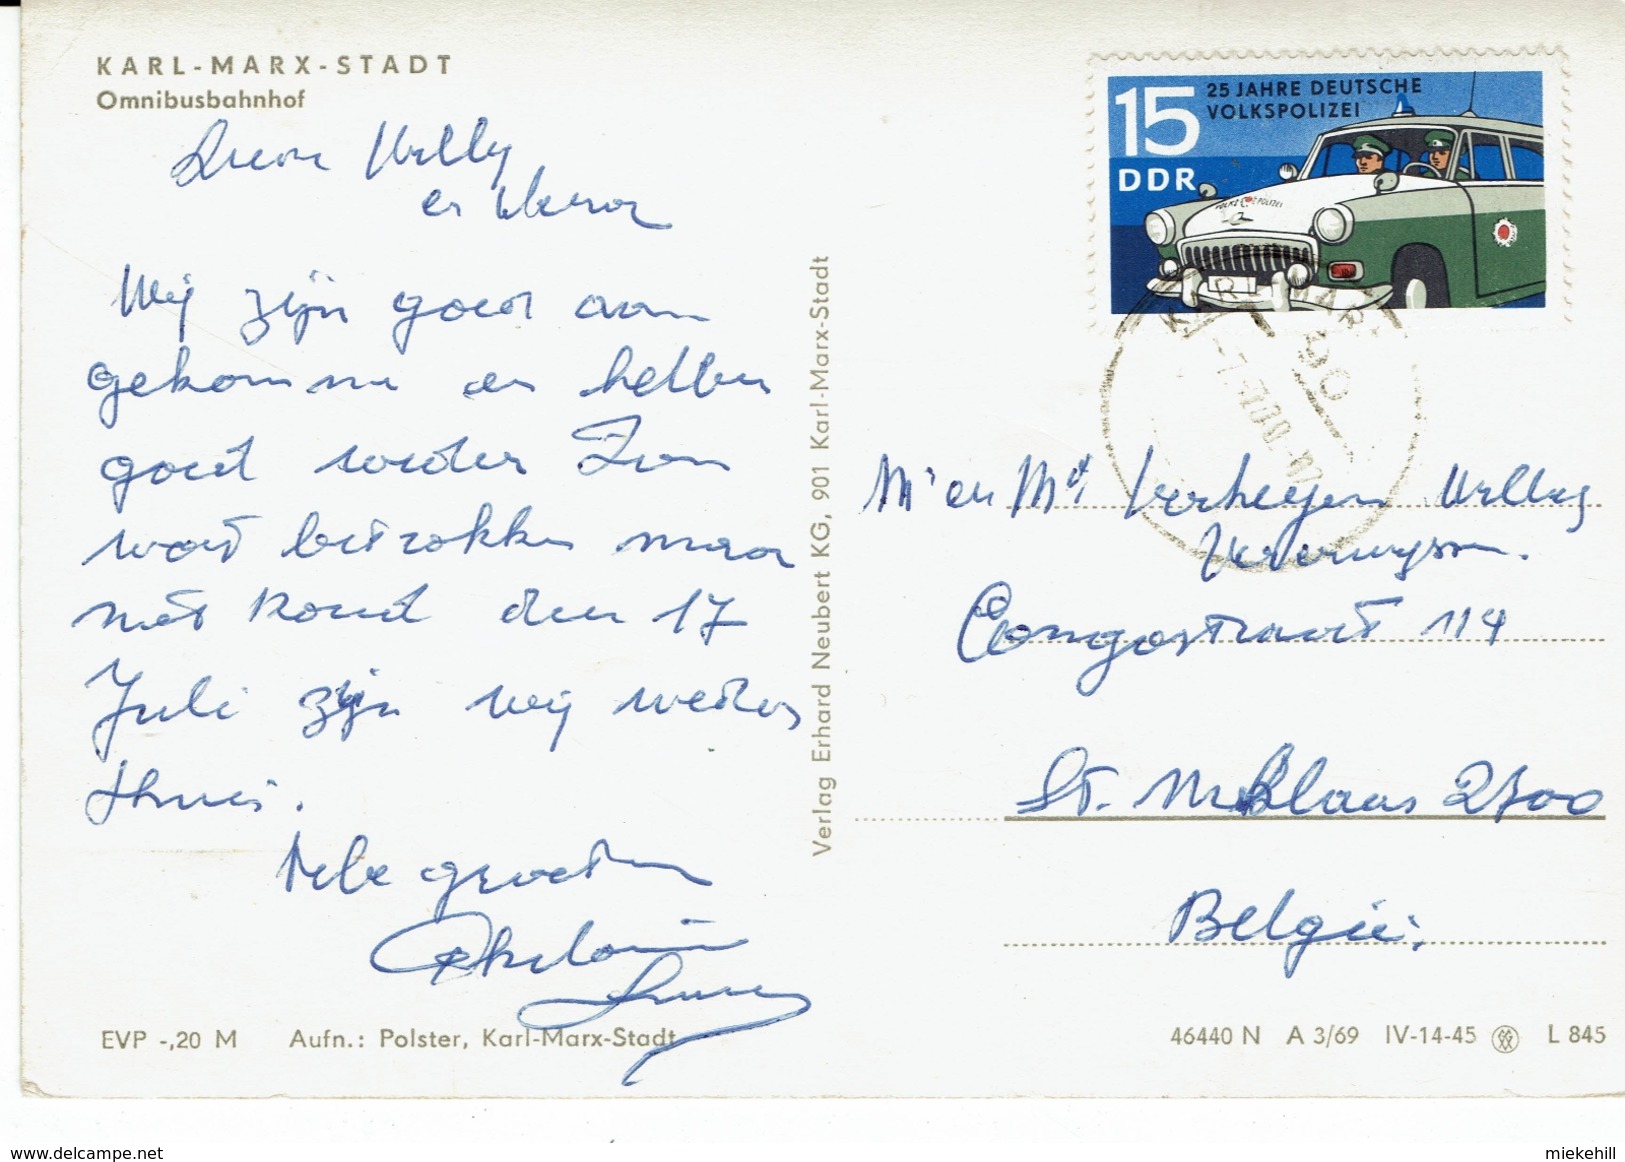 KARL-MARX-STADT
Omnibusbahnhof
Willy
en
Wij zijn goed aan
gekomme en hebben
goed weder Zon
wat betrokken maar
niet koud den 17
Juli zijn wij weder
thuis.
Vele groeten
Verlag Erhard Neubert KG, 901 Karl-Marx-Stadt
EVP -,20 M Aufn.: Polster, Karl-Marx-Stadt
25 JAHRE DEUTSCHE
VOLKSPOLIZEI
15
DDR
VOLKSPOLIZEI
KARL-MARX-
90
Mr en Md Verheyen Willy
Congostraat 114
St. Niklaas 2700
België.
46440 N A 3/69 IV-14-45 L 845
www.delcampe.net
miekehill